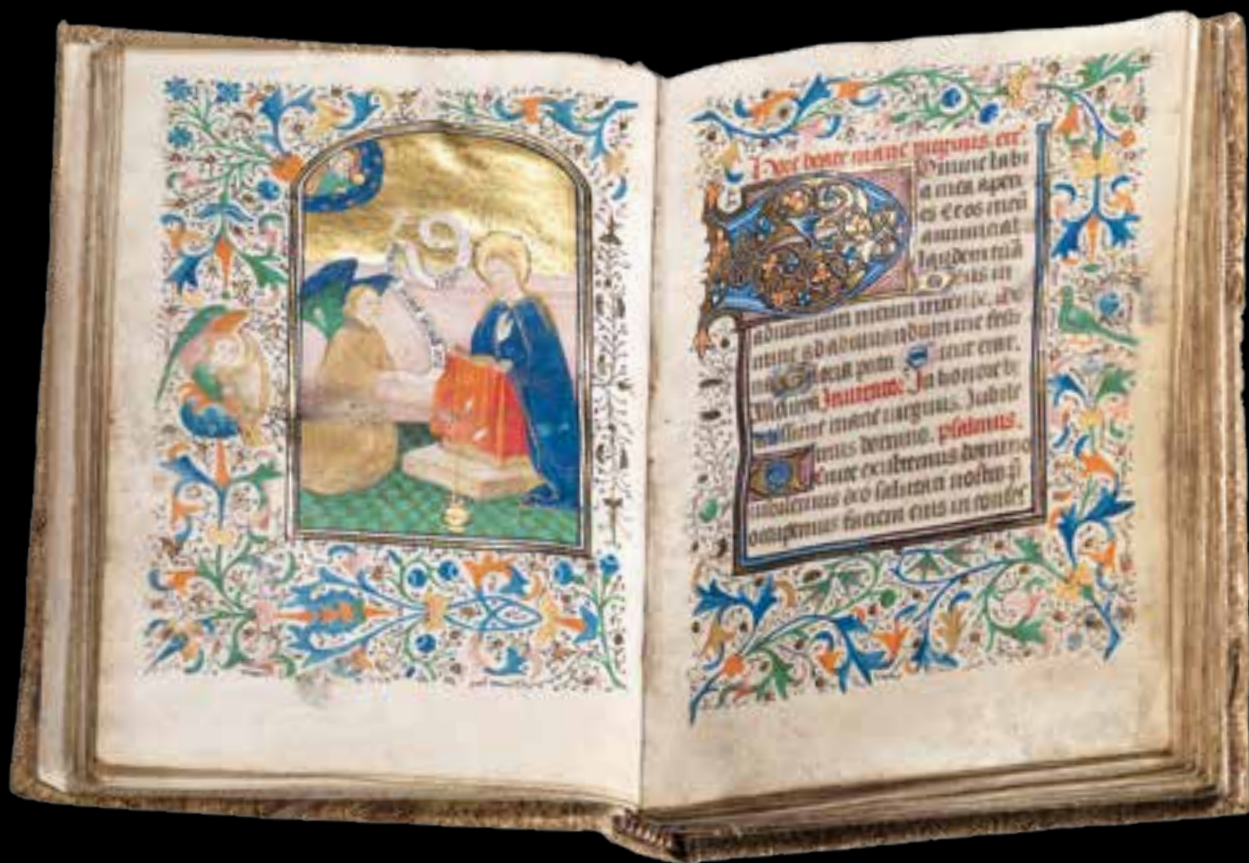 Hore beate marie virginis.
Domine labi
a mea aperi
es et os meū
annunciabit
laudem tuā
Deus in
adiutorium meum intende. do
mine ad adiuuandum me festi
Gloria patri Sicut erat.
In honore b
tissime marie virginis. Jubile
mus domino. psalmus.
Uenite exultemus domino
iubilemus deo salutari nostro p̄
occupemus faciem eius in confes